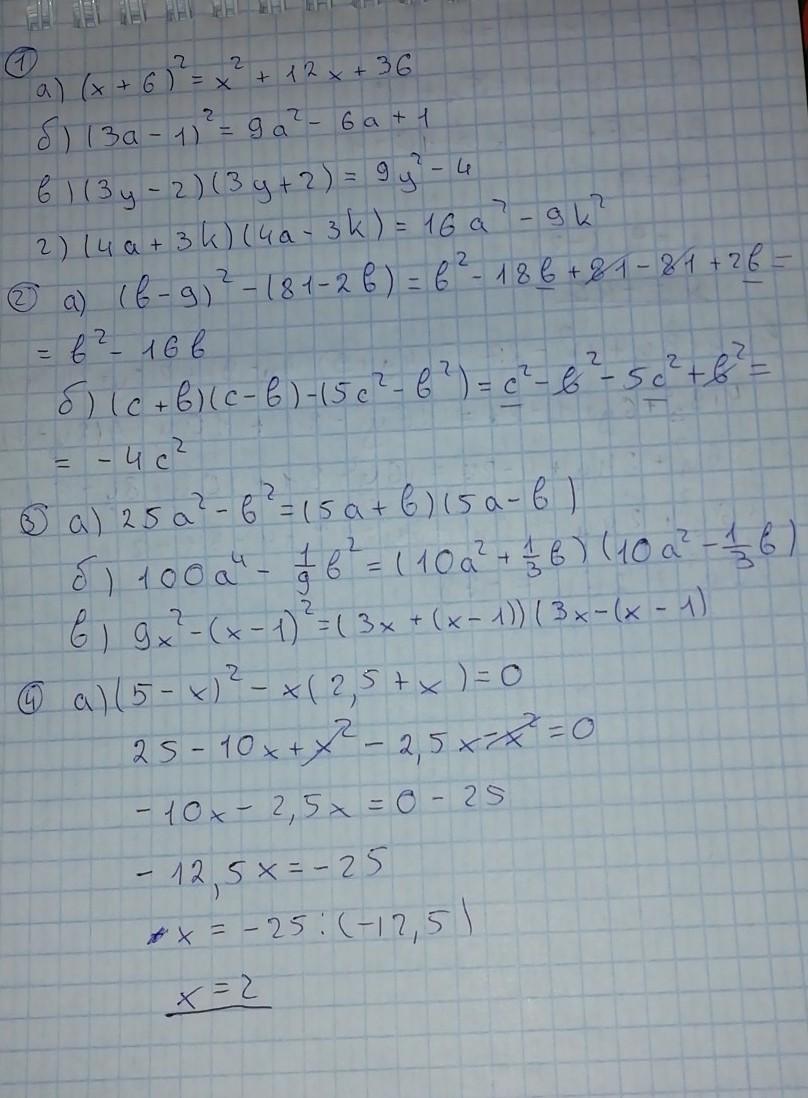 ① а) (x + 6)² = x² + 12x + 36
б) (3a − 1)² = 9a² − 6a + 1
в) (3y − 2)(3y + 2) = 9y² − 4
г) (4a + 3k)(4a − 3k) = 16a² − 9k²
② а) (в − 9)² − (81 − 2в) = в² − 18в + 81 − 81 + 2в =
= в² − 16в
б) (c + в)(c − в) − (5c² − в²) = c² − в² − 5c² + в² =
= − 4c²
③ а) 25a² − в² = (5a + в)(5a − в)
б) 100a⁴ − 1/9 в² = (10a² + 1/3 в)(10a² − 1/3 в)
в) 9x² − (x − 1)² = (3x + (x − 1))(3x − (x − 1)
④ а) (5 − x)² − x(2,5 + x) = 0
25 − 10x + x² − 2,5x − x² = 0
− 10x − 2,5x = 0 − 25
− 12,5x = − 25
x = − 25 : (−12,5)
x = 2